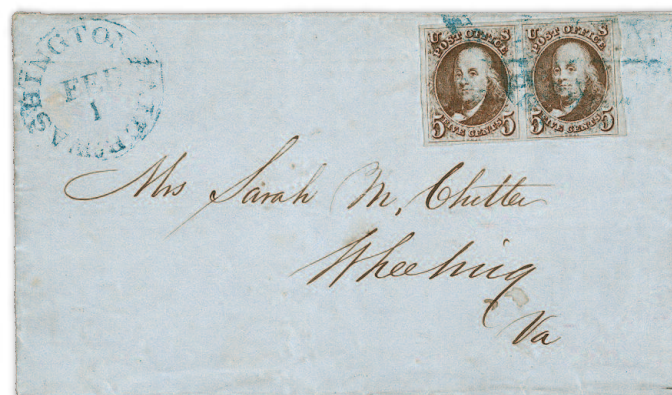 WASHINGTON
FEB
1
U S
POST OFFICE
5 FIVE CENTS 5
U S
POST OFFICE
5 FIVE CENTS 5
Mrs Sarah M, Chitter
Wheeling
Va